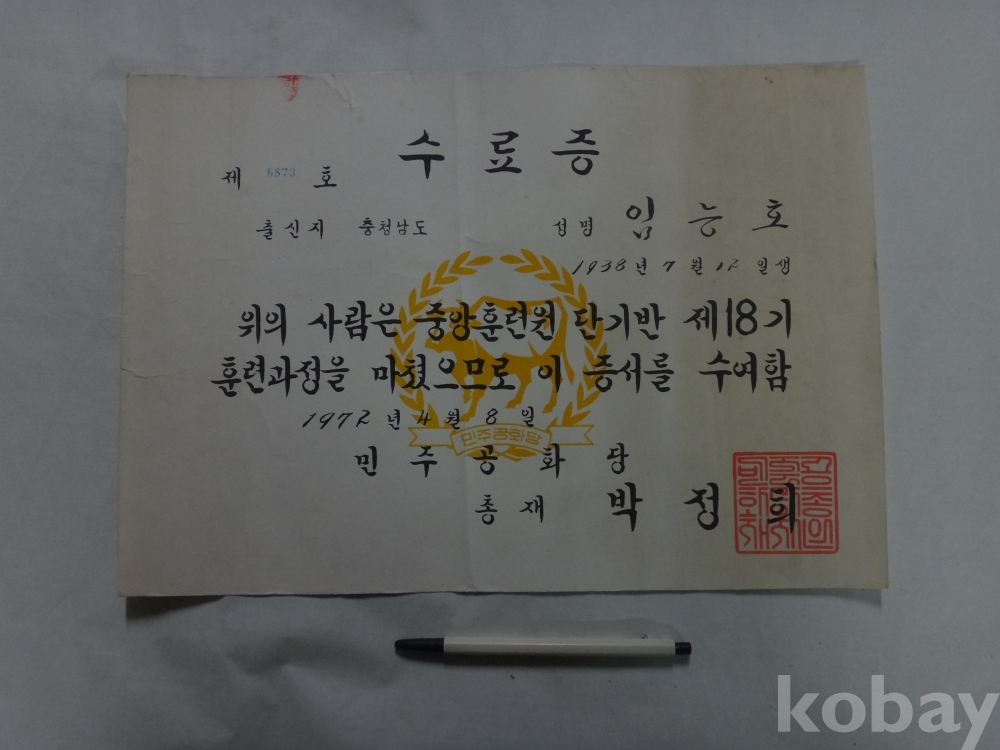 수료증
제 6873 호
출신지 충청남도 성명 임능호
1938년 7월 12일생
위의 사람은 중앙훈련원 단기반 제18기
훈련과정을 마쳤으므로 이 증서를 수여함
1972년 4월 8일
민주공화당
민주공화당
총재 박정희
kobay